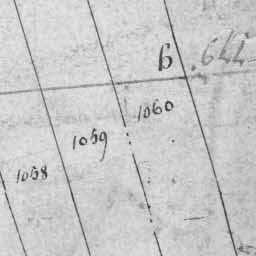 б 644
1060
1059
1058